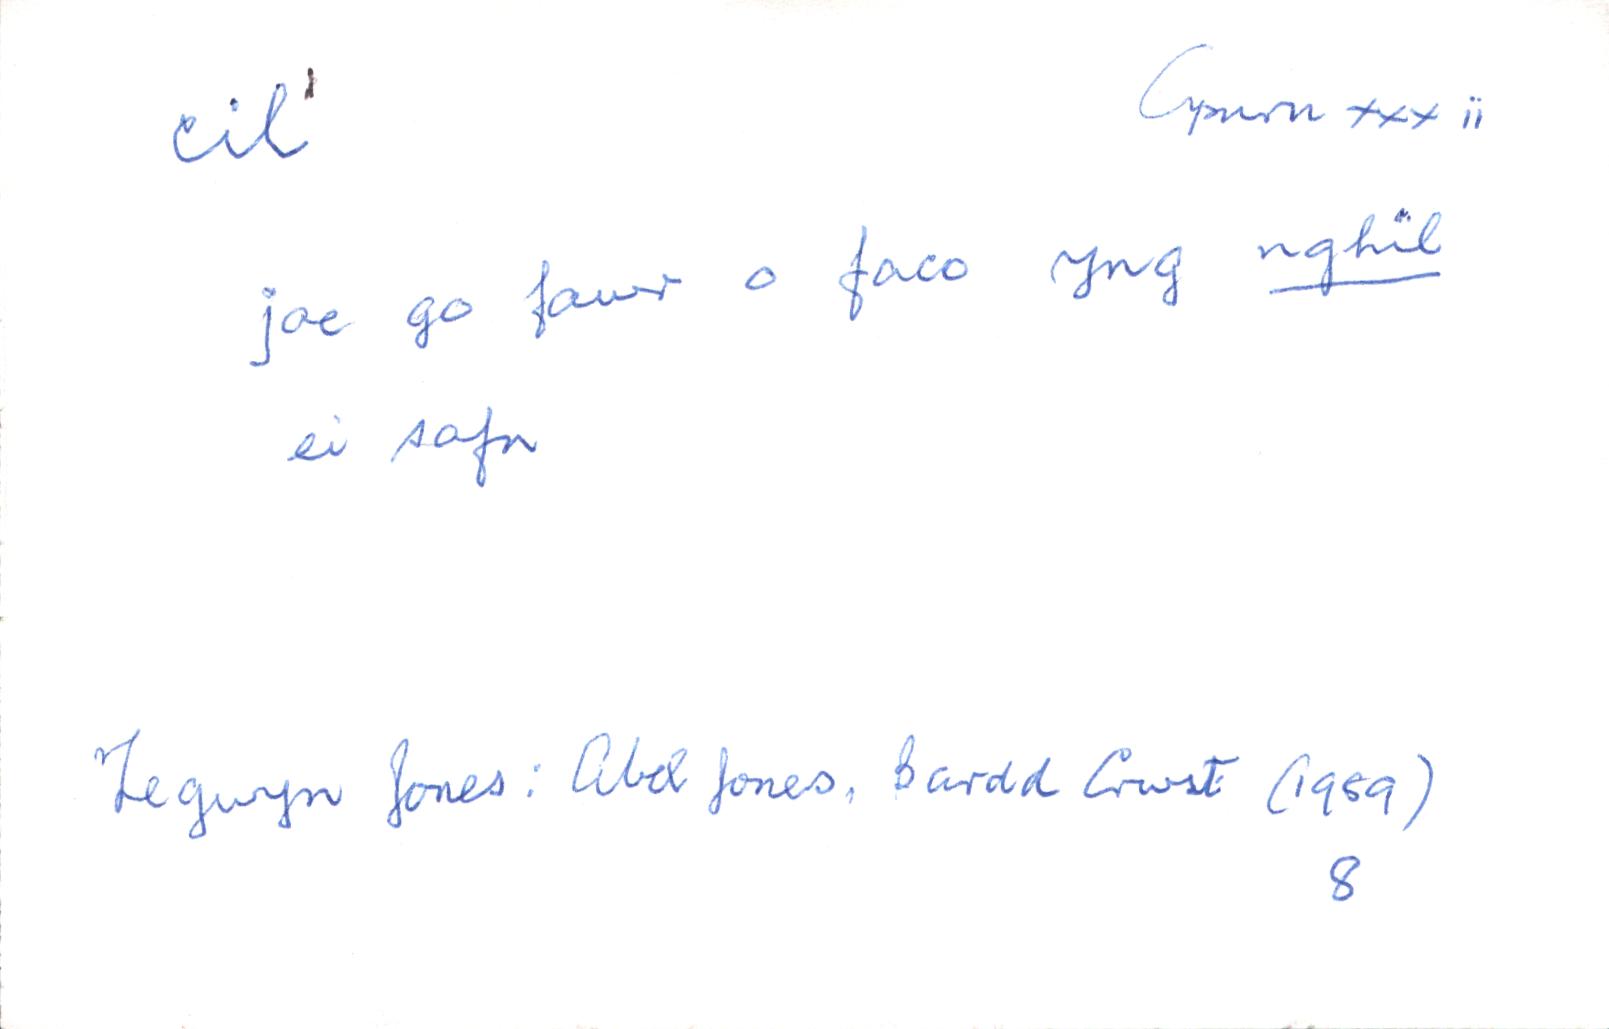 cil¹
Cymru xxxii
joe go fawr o faco yng nghil
ei safn
Tegwyn Jones: Abel Jones, Bardd Crwst (1989)
8